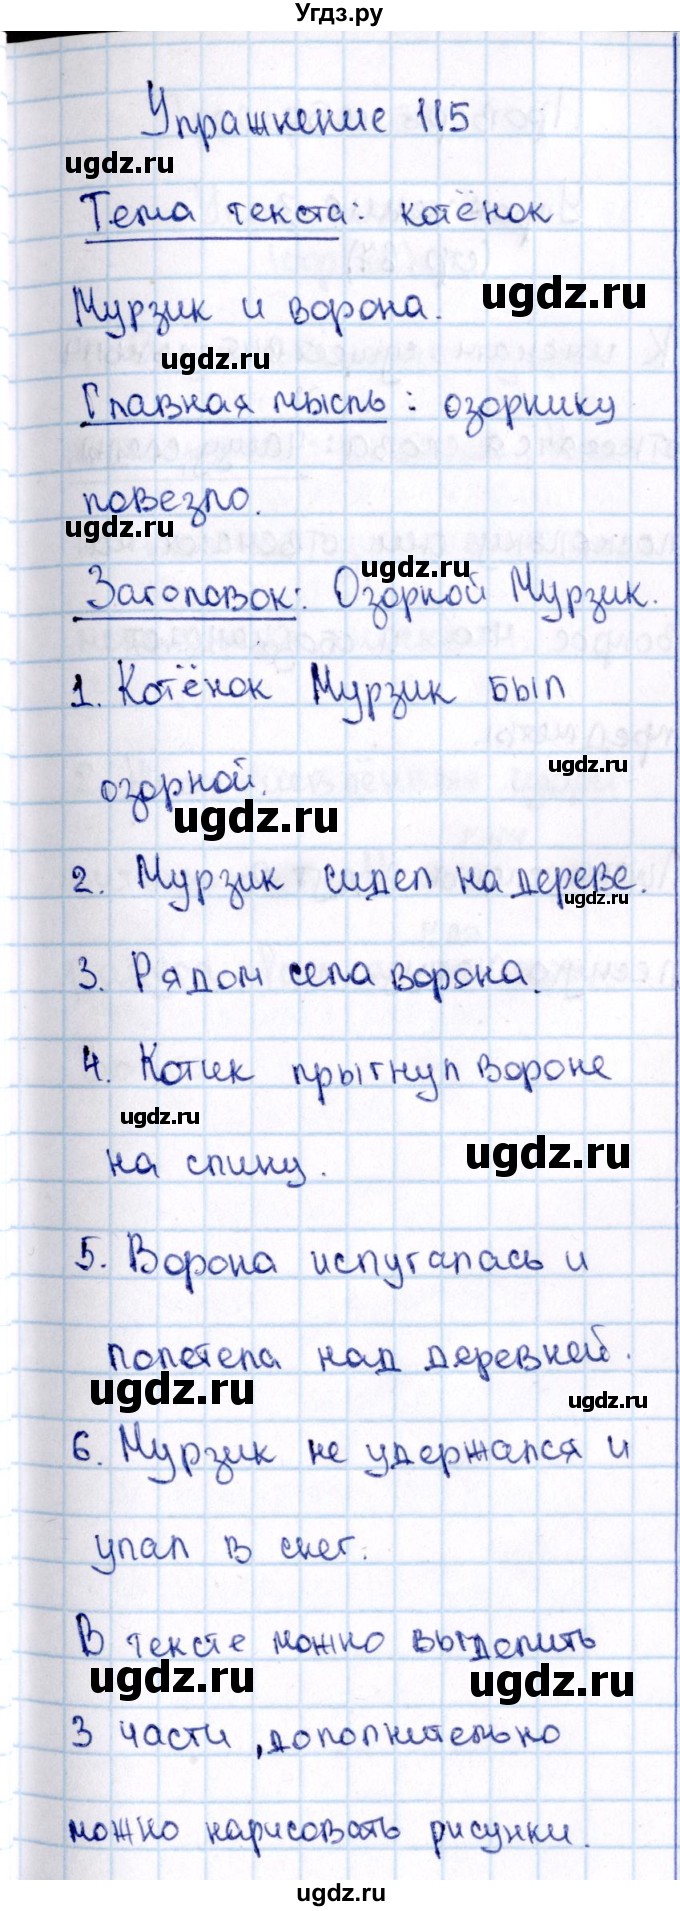 Угдз.ру
Упражнение 115
ugdz.ru
Тема текста: котёнок
ugdz.ru
Мурзик и ворона.
ugdz.ru
Главная мысль: озорнику
повезло.
ugdz.ru
ugdz.ru
Заголовок: Озорной Мурзик.
1. Котёнок Мурзик был
ugdz.ru
озорной.
ugdz.ru
2. Мурзик сидел на дереве.
ugdz.ru
3. Рядом села ворона.
4. Котик прыгнул вороне
ugdz.ru
на спину.
ugdz.ru
5. Ворона испугалась и
полетела над деревней.
ugdz.ru
ugdz.ru
6. Мурзик не удержался и
упал в снег.
В тексте можно выделить
ugdz.ru
ugdz.ru
3 части, дополнительно
можно нарисовать рисунки.
ugdz.ru